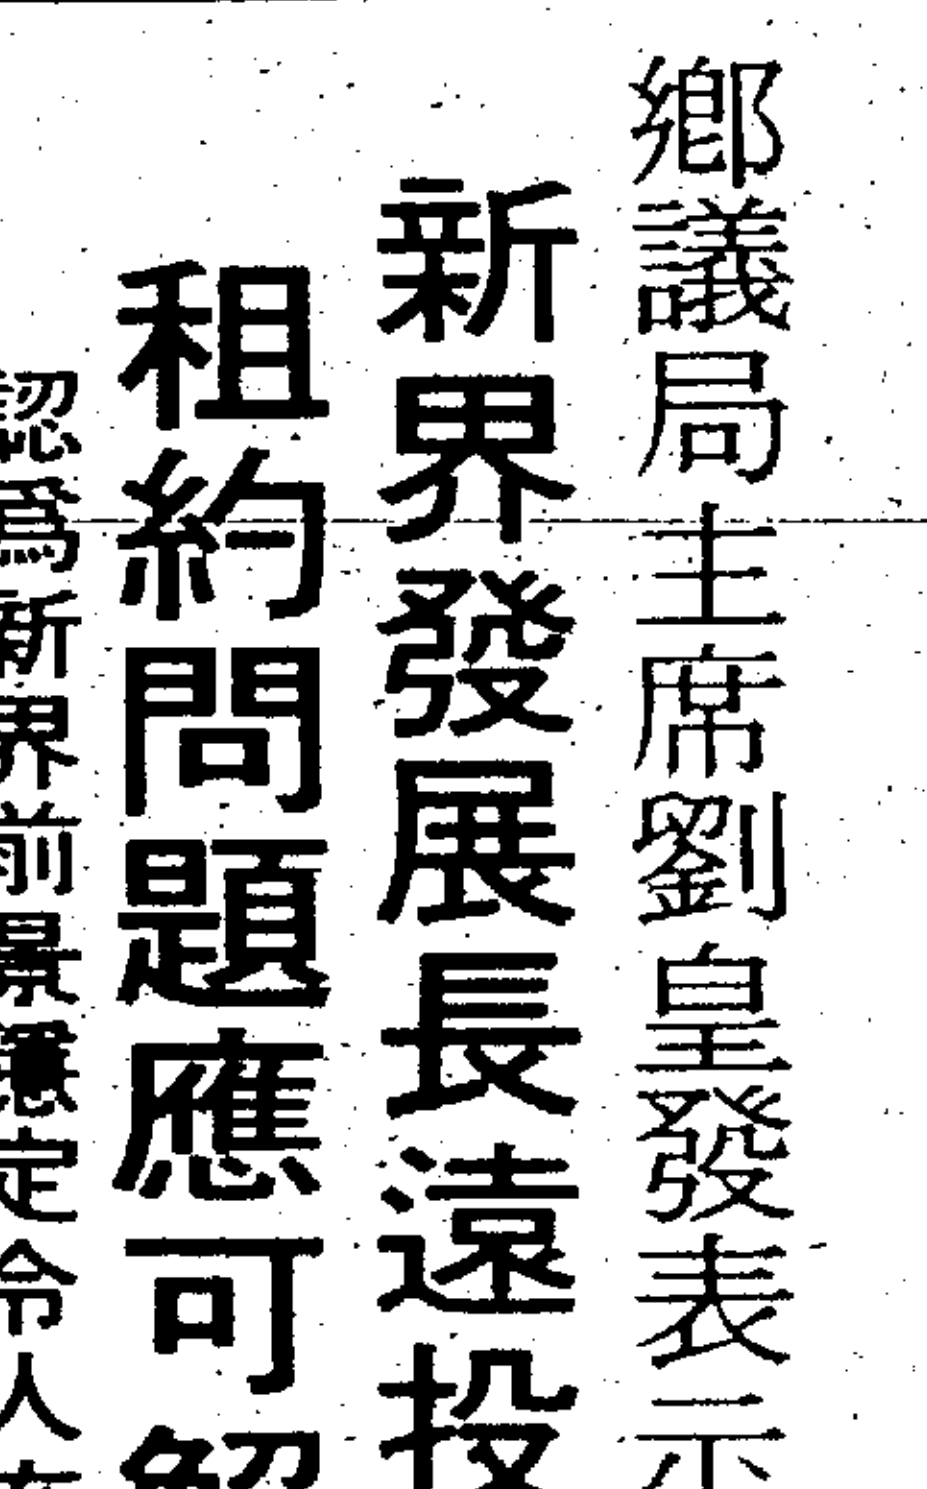 鄉議局主席劉皇發表示
新界發展長遠投
租約問題應可解
認為新界前景穩定令人